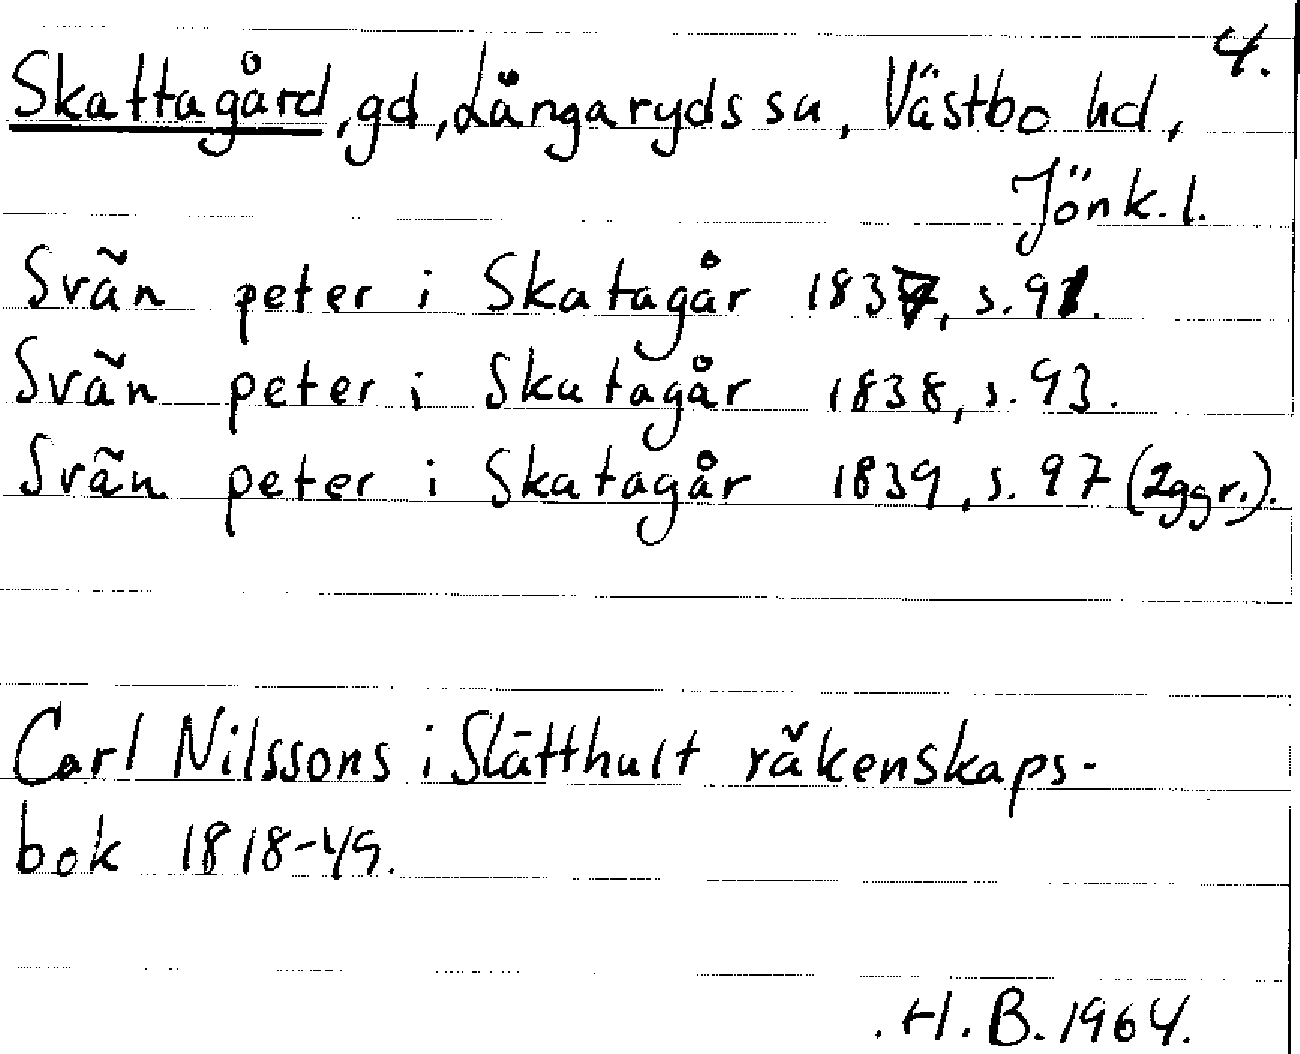 4.
Skattagård, gd, Långaryds sn, Västbo hd,
Jönk. l.
Svän peter i Skatagår 1837, s. 91.
Svän peter i Skatagår 1838, s. 93.
Svän peter i Skatagår 1839, s. 97 (2ggr.).
Carl Nilssons i Slätthult räkenskaps-
bok 1818-49.
H. B. 1964.